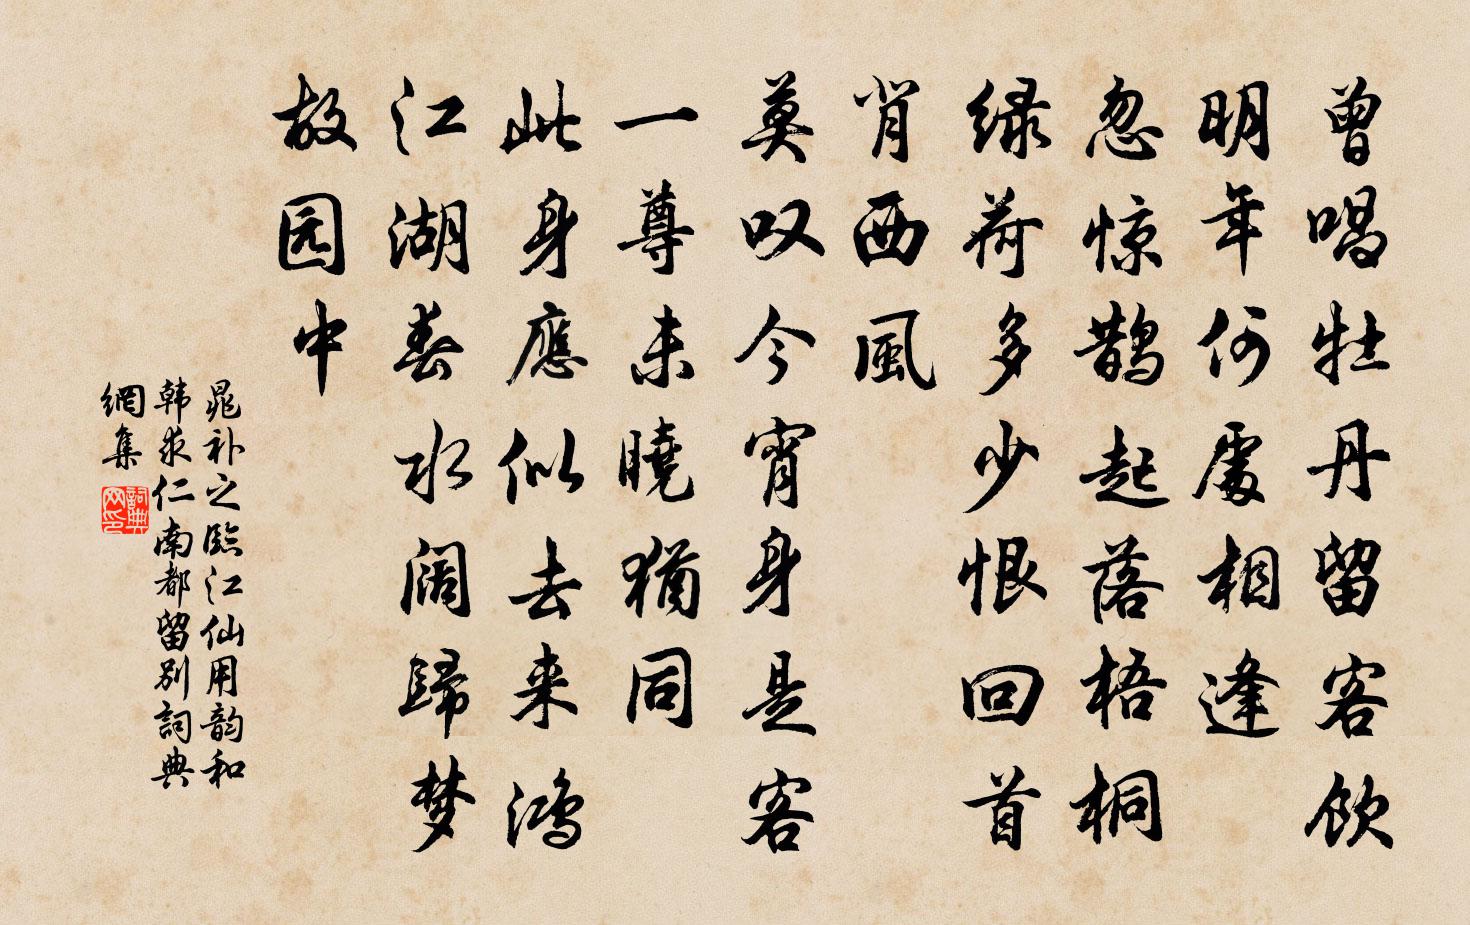 曾唱牡丹留客飲
明年何處相逢
忽惊鹊起落梧桐
绿荷多少恨回首
背西風
莫叹今宵身是客
一尊未曉猶同
此身應似去来鸿
江湖春水阔歸梦
故园中
晁补之臨江仙用韵和
韩求仁南都留别詞典
網集
詞典网印